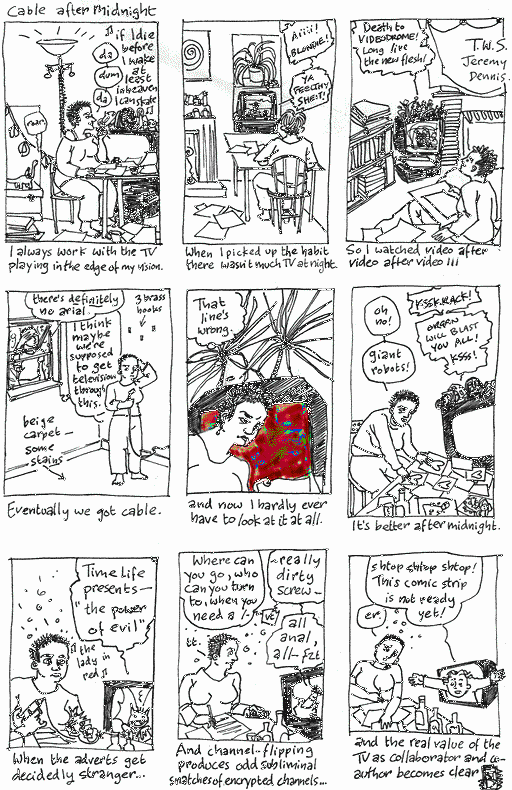 Cable after midnight
♫ if I die
before
I wake
at
least
in heaven
I can skate ♫
da
dum
da
roar.
I always work with the TV
playing in the edge of my vision.
Aiiii!
BLONDIE!
YA
FEELTHY
SHEIT!
When I picked up the habit
there wasn't much TV at night.
Death to
VIDEODROME!
Long live
the new flesh!
T.W.S.
Jeremy
Dennis.
So I watched video after
video after video!!!
there's definitely
no arial.
3 brass
hooks
I think
maybe
we're
supposed
to get
television
through
this.
beige
carpet
some
stains
Eventually we got cable.
That
line's
wrong.
and now I hardly ever
have to look at it at all.
oh
no!
giant
robots!
KSSKRACK!
ORGAN
WILL BLAST
YOU ALL!
KSSS!
It's better after midnight.
Time Life
presents—
"the power
of evil"
♫ the
lady in
red ♫
When the adverts get
decidedly stranger...
Where can
you go, who
can you turn
to, when you
need a /-
~really
dirty
screw~
all
anal,
all~fzt
tt.
And channel-flipping
produces odd subliminal
snatches of encrypted channels...
shtop shtop shtop!
This comic strip
is not ready
yet!
er.
and the real value of the
TV as collaborator and co-
author becomes clear